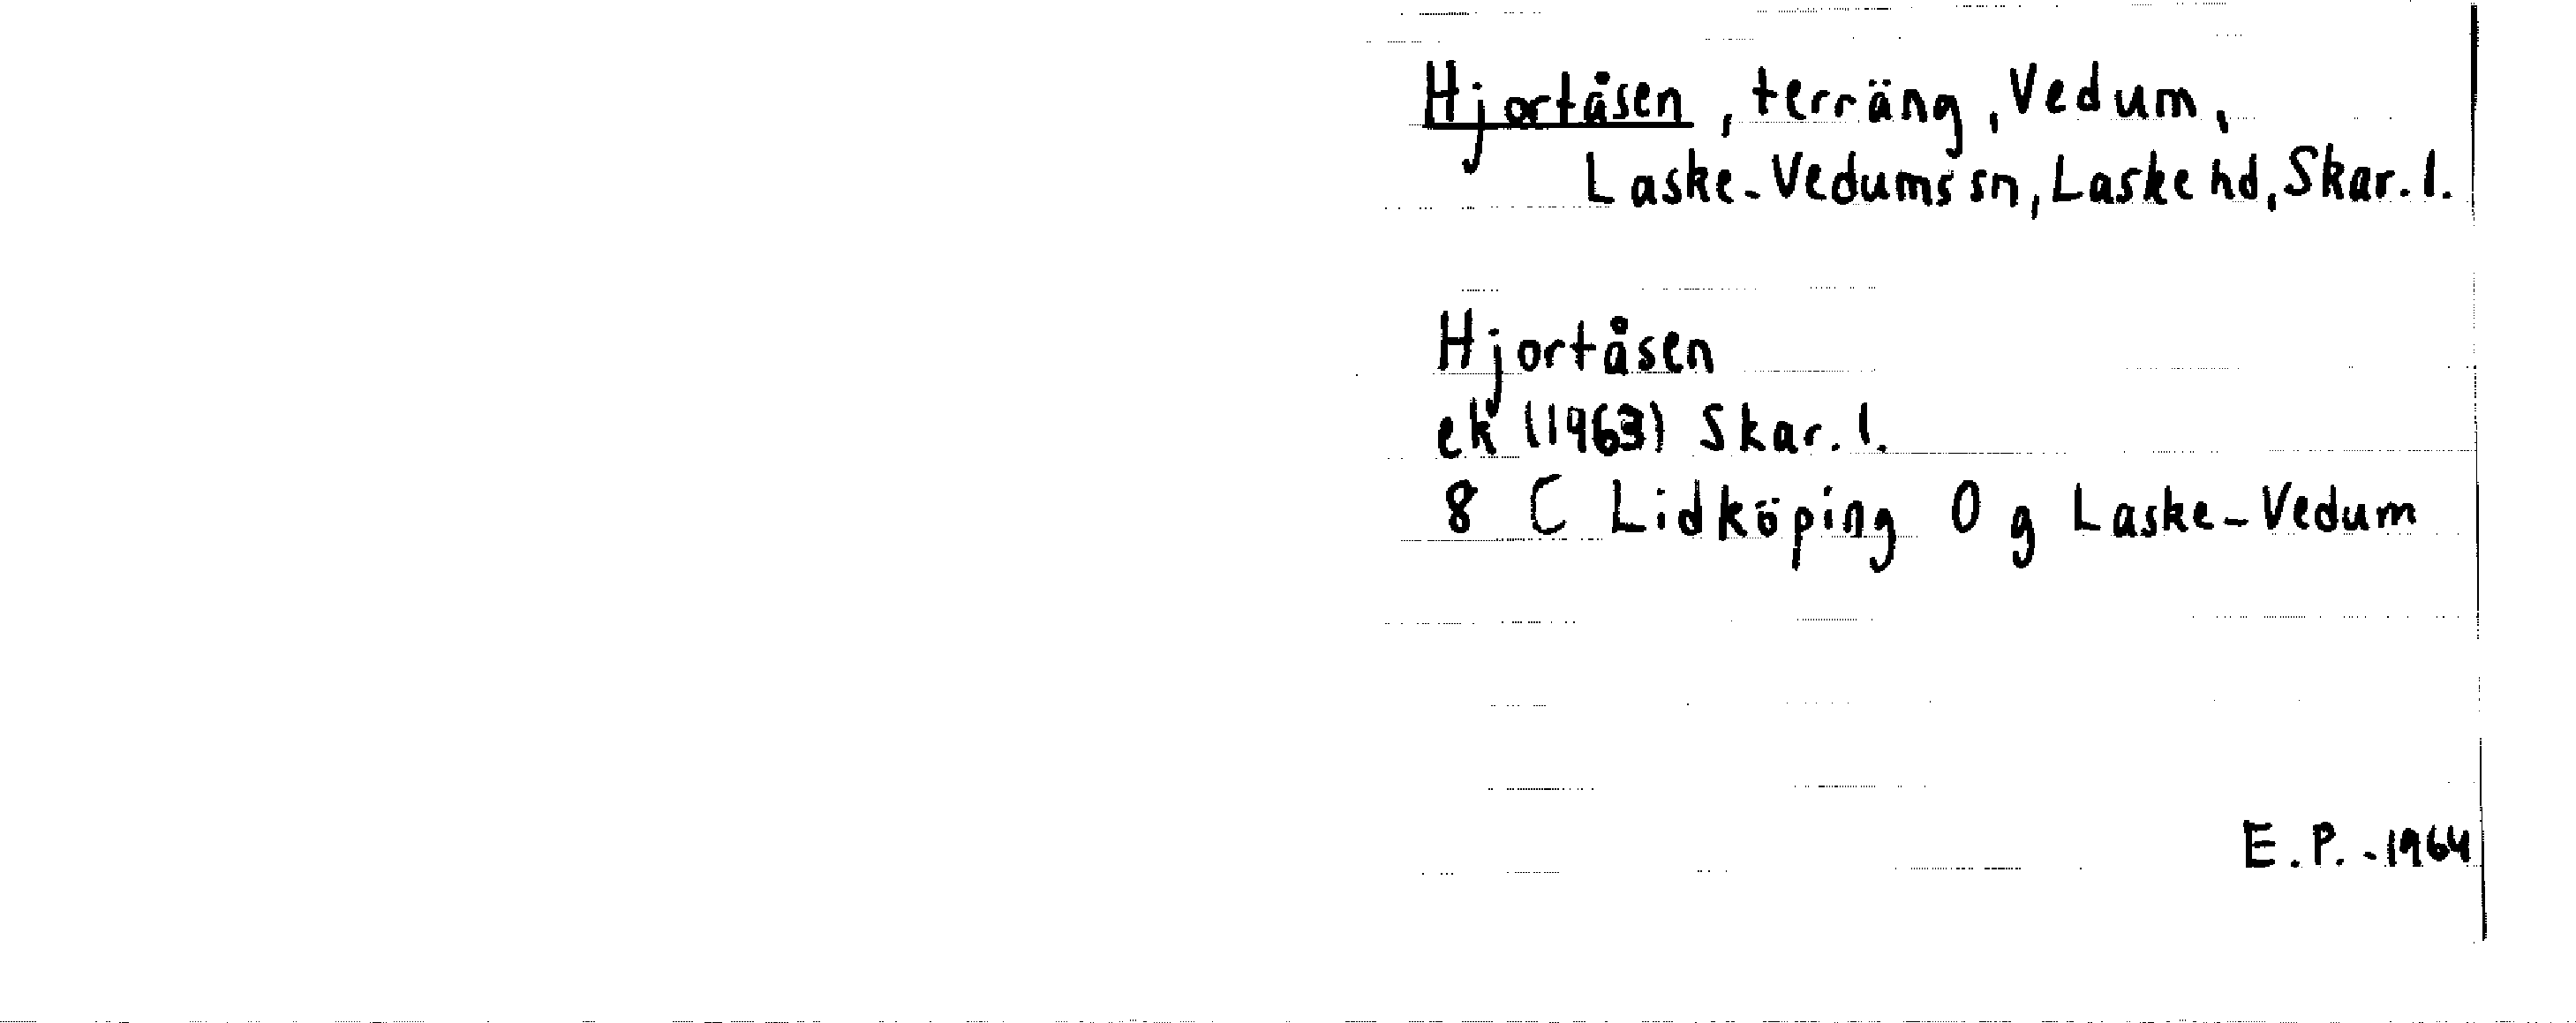 Hjortåsen, terräng, Vedum,
Laske-Vedums sn, Laske hd, Skar. l.
Hjortåsen
ek (1963) Skar. l.
8 C Lidköping 0 g Laske-Vedum
E.P. -1964